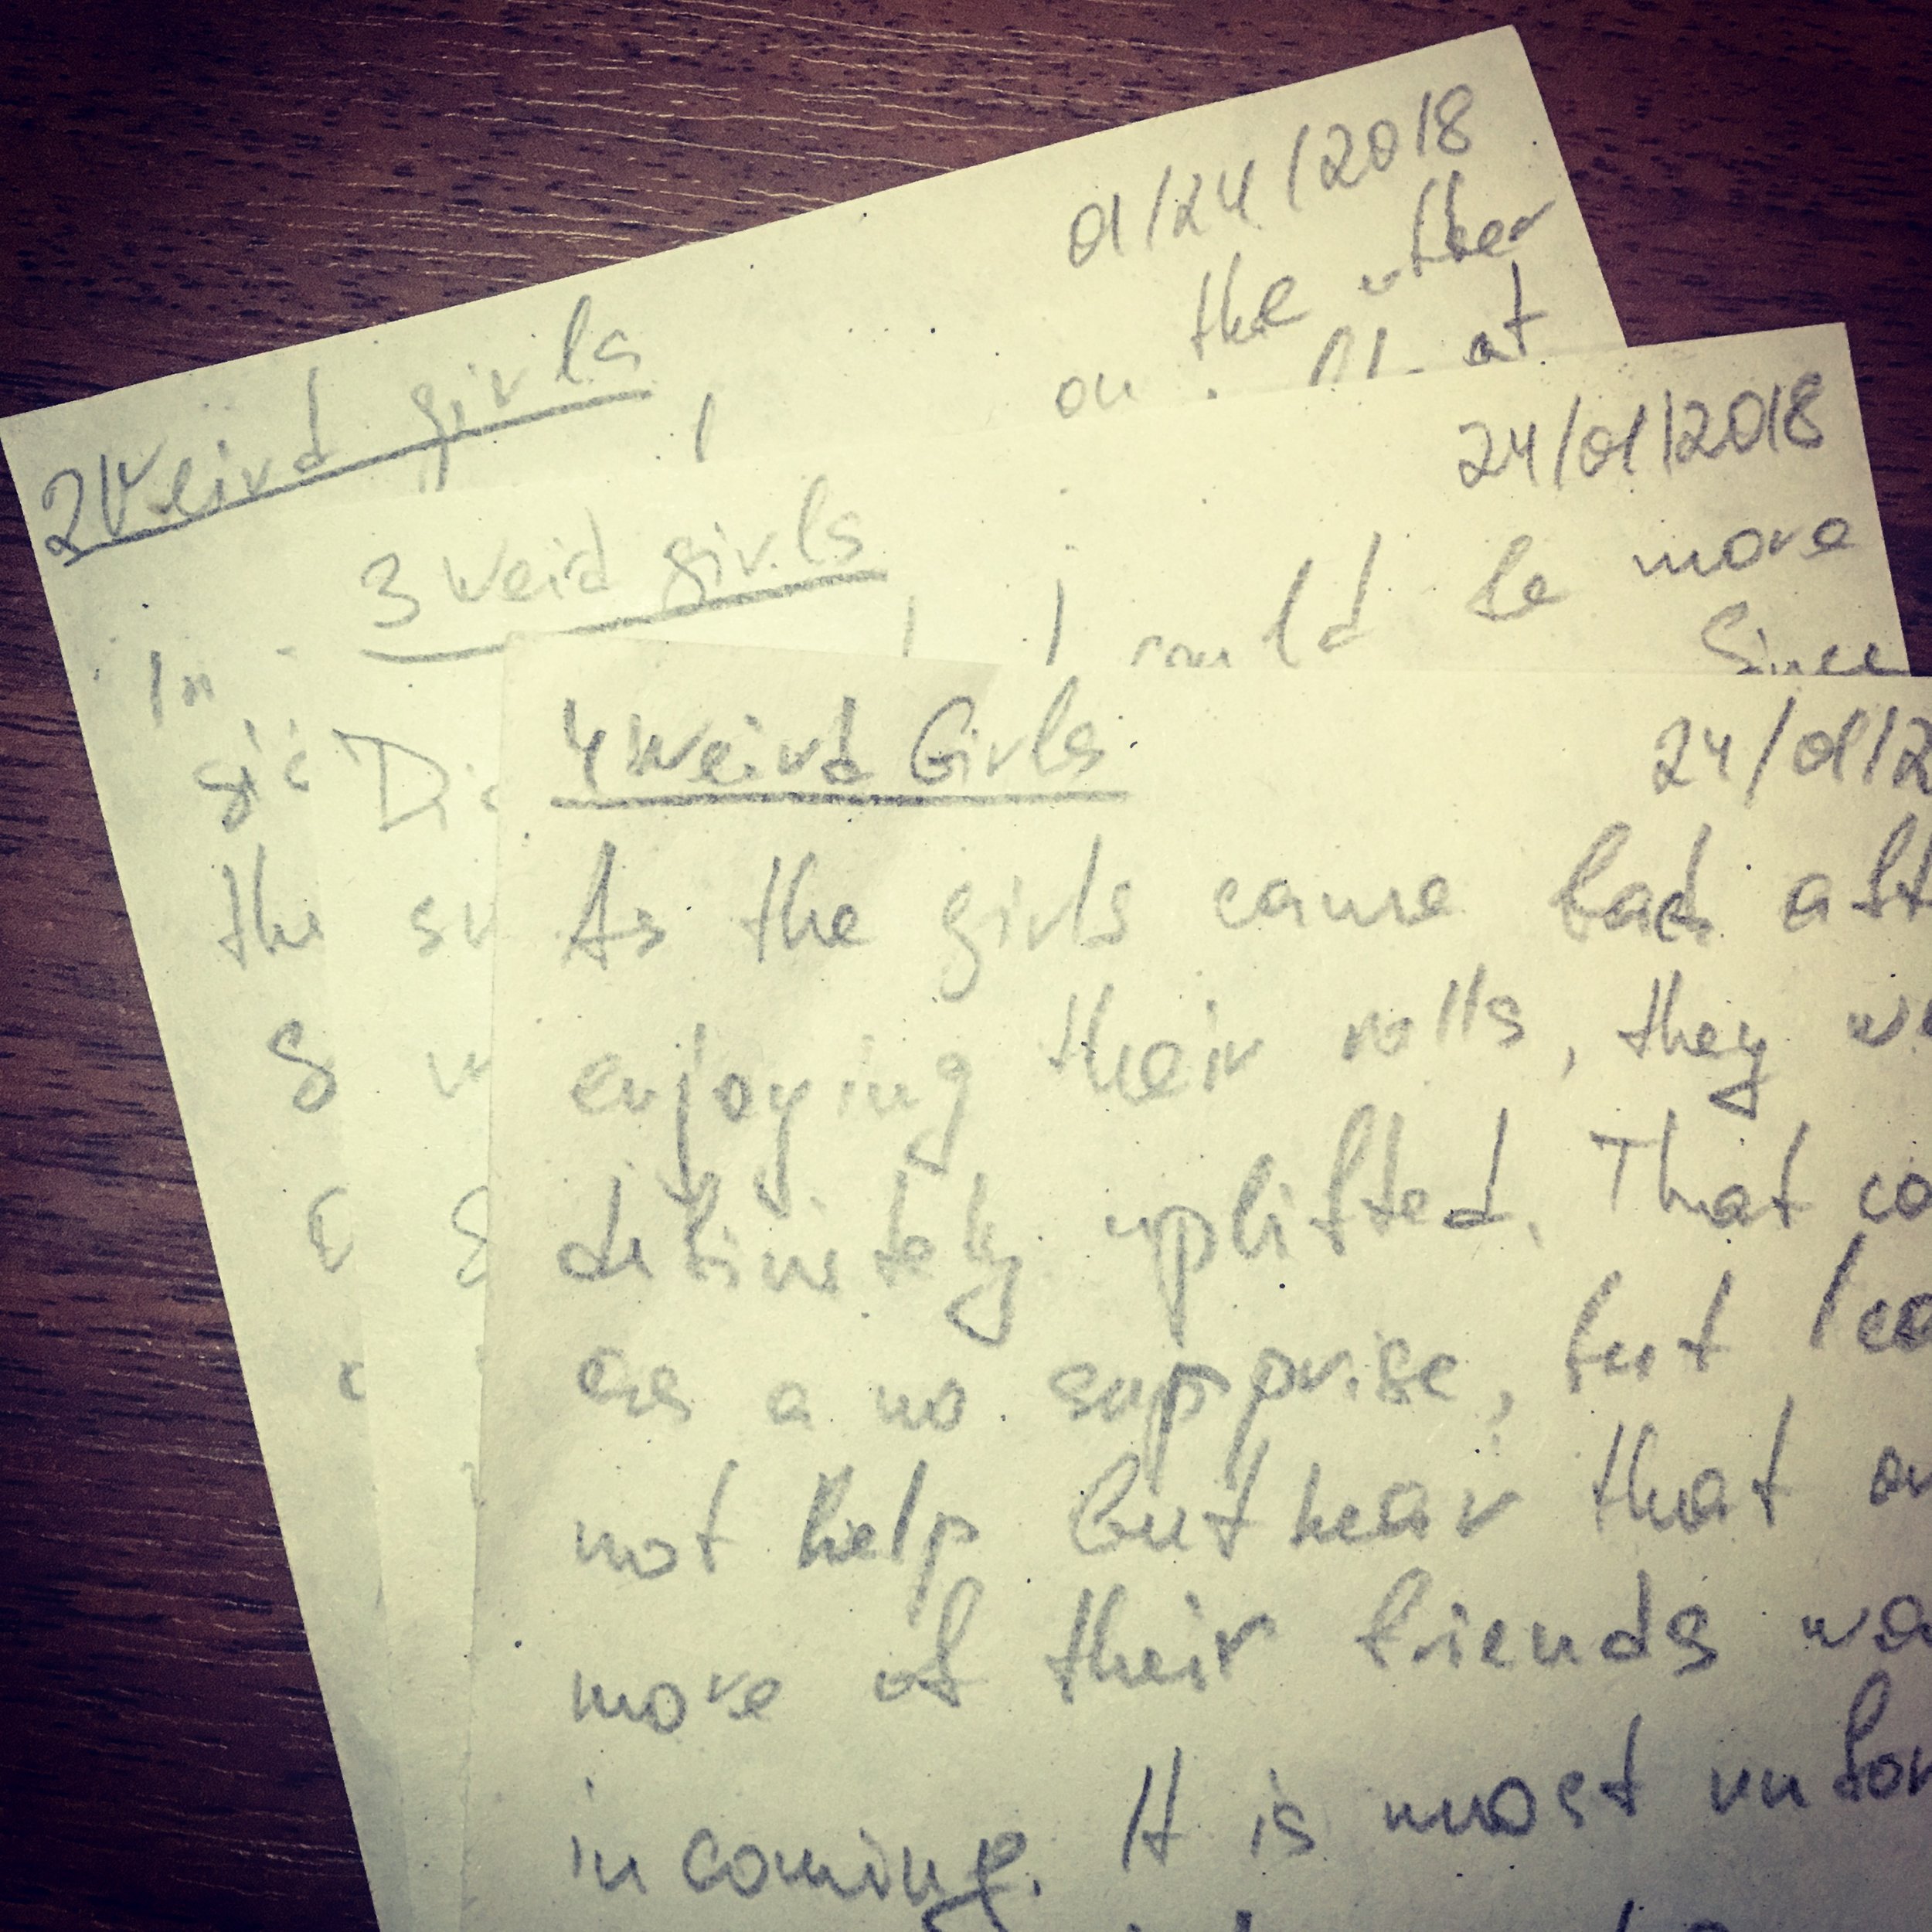 01/24/2018
2 Weird girls
the other
on at
In
the
24/01/2018
3 Weid girls
I could be more
Since
4 Weird Girls
24/01/2
As the girls came back aft
enjoying their rolls, they we
definitely uplifted. That co
as a no supprise, but I co
not help but hear that on
more of their friends wa
incoming. It is most unfor